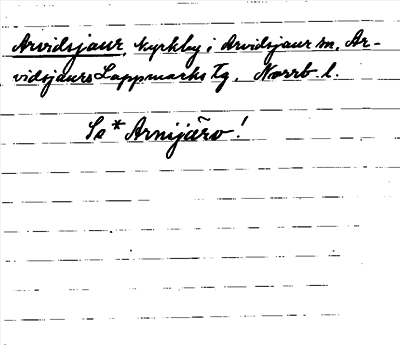 Arvidsjaur, kyrkby i Arvidsjaur sn, Ar-
vidsjaurs Lappmarks Tg, Norrb. l.
Se * Arnijärv!